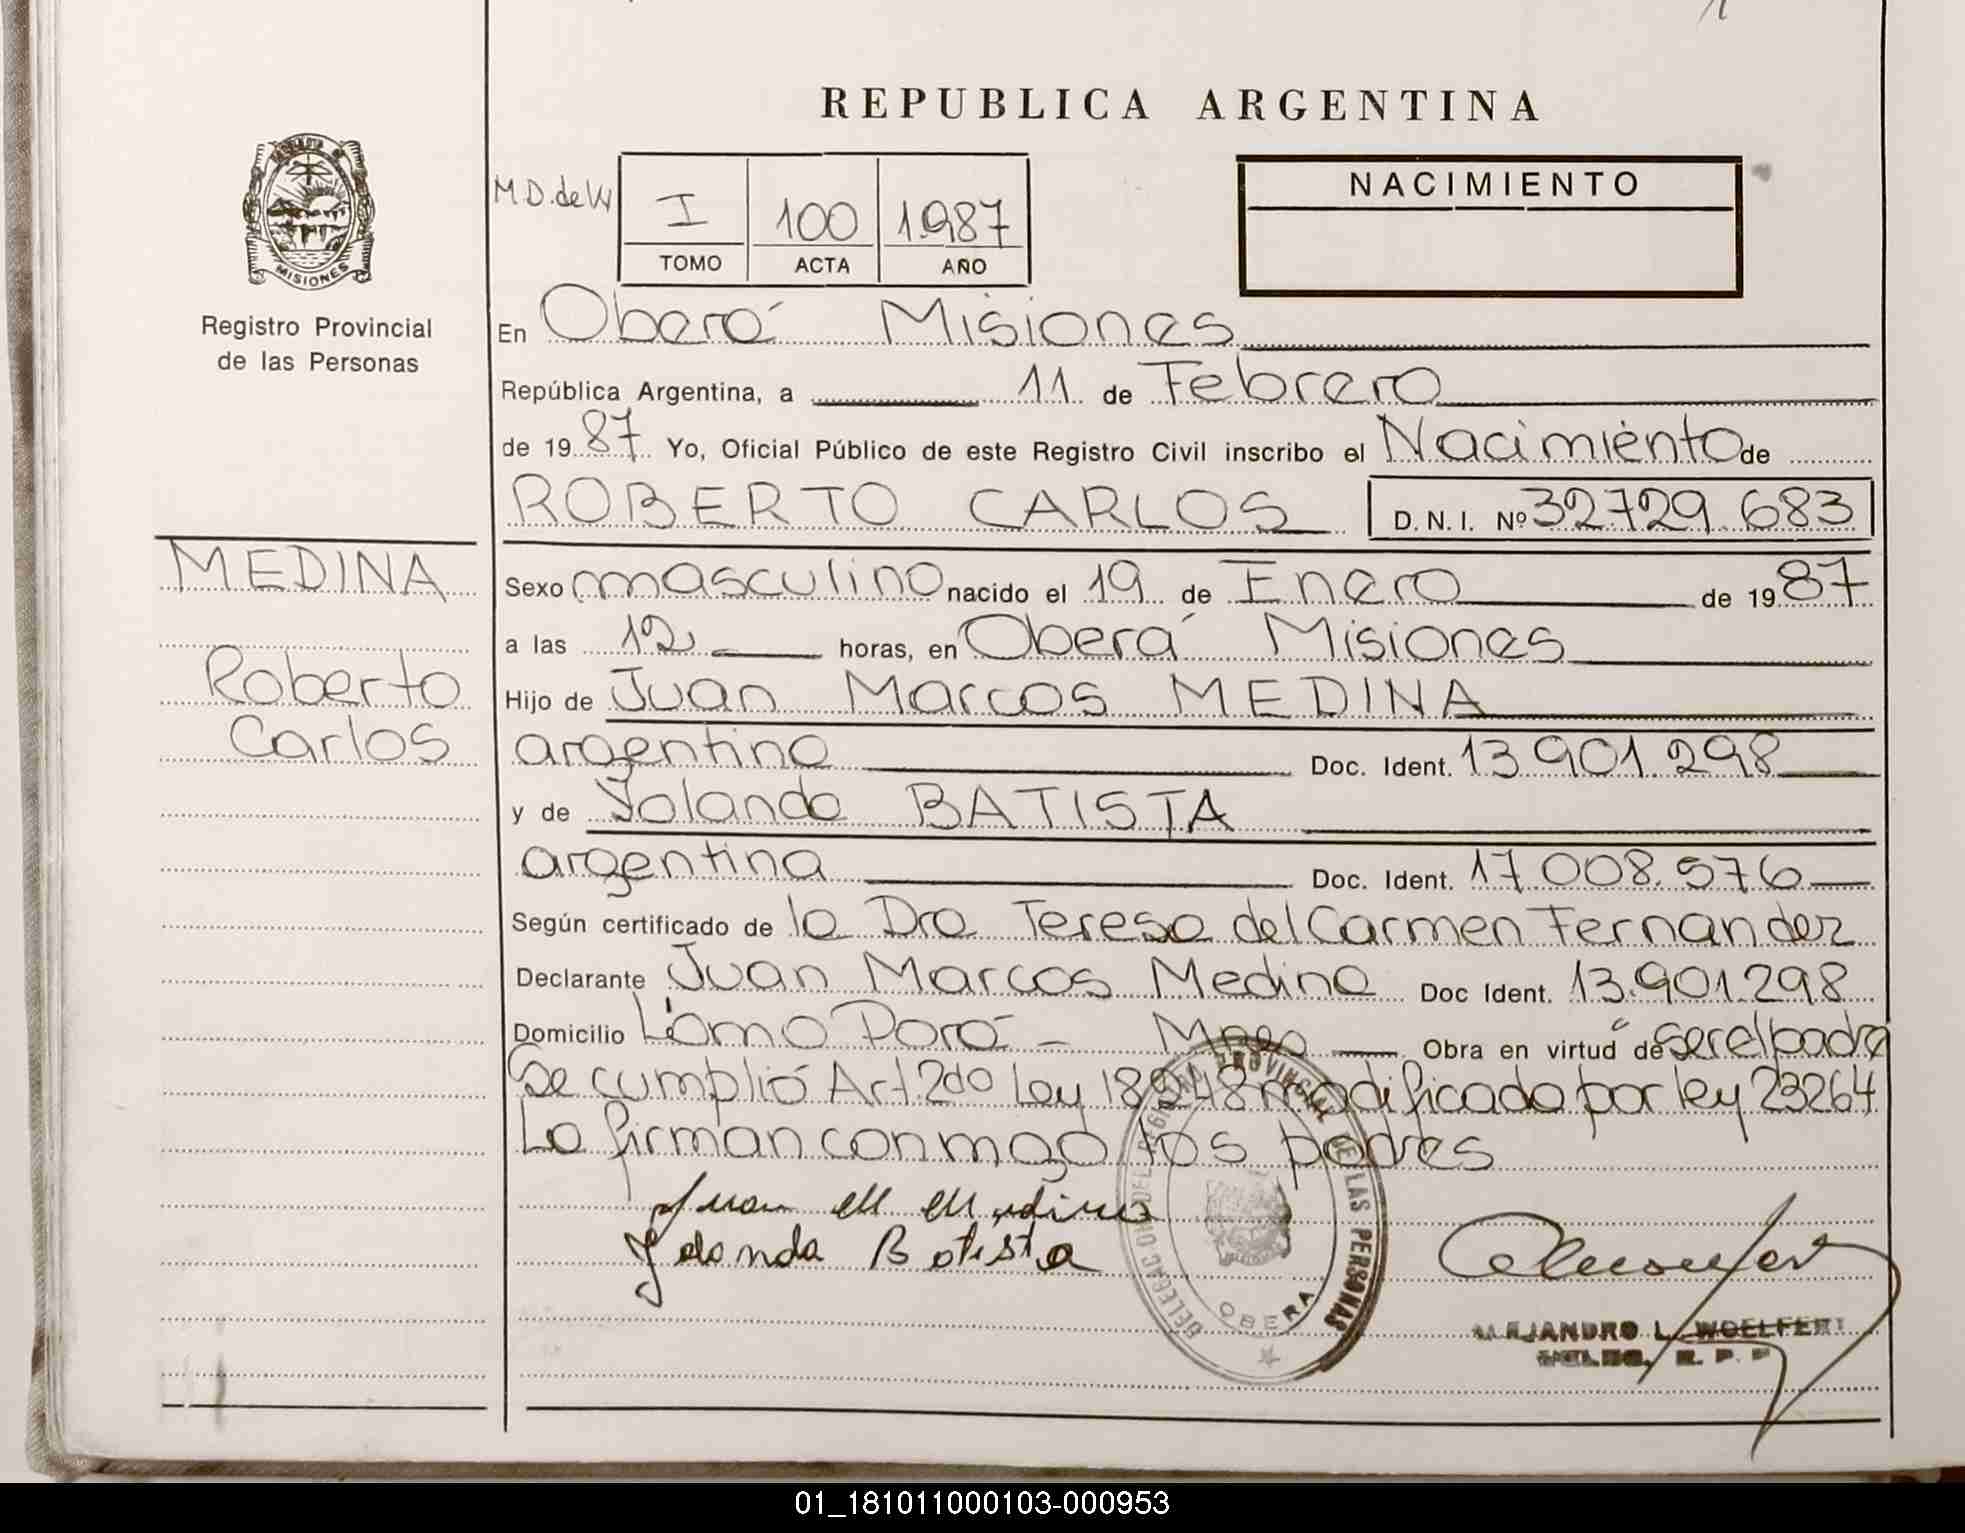 REPUBLICA ARGENTINA
MISIONES
Registro Provincial
de las Personas
M D. de W
I 100 1.987
TOMO ACTA AÑO
NACIMIENTO
En Oberá Misiones
República Argentina, a 11 de Febrero
de 19 87 Yo, Oficial Público de este Registro Civil inscribo el Nacimiento de
ROBERTO CARLOS D. N. I. Nº 32729 683
MEDINA
Roberto
Carlos
Sexo masculino nacido el 19 de Enero de 19 87
a las 12 horas, en Oberá Misiones
Hijo de Juan Marcos MEDINA
argentino Doc. Ident. 13 901 298
y de Yolanda BATISTA
argentina Doc. Ident. 17 008.576
Según certificado de la Dra Teresa del Carmen Fernandez
Declarante Juan Marcos Medina Doc Ident. 13.901.298
Domicilio Domicilio Mnes Obra en virtud de ser el padre
Se cumplió Art. 2do Ley 18248 modificado por ley 23264
La firman conmigo los padres
Juan M Medina
Yolanda Batista
DELEGAC DEL REGISTRO PROVINCIAL DE LAS PERSONAS
OBERA
ALEJANDRO L. WOELFERT
R. P. P
01_181011000103-000953